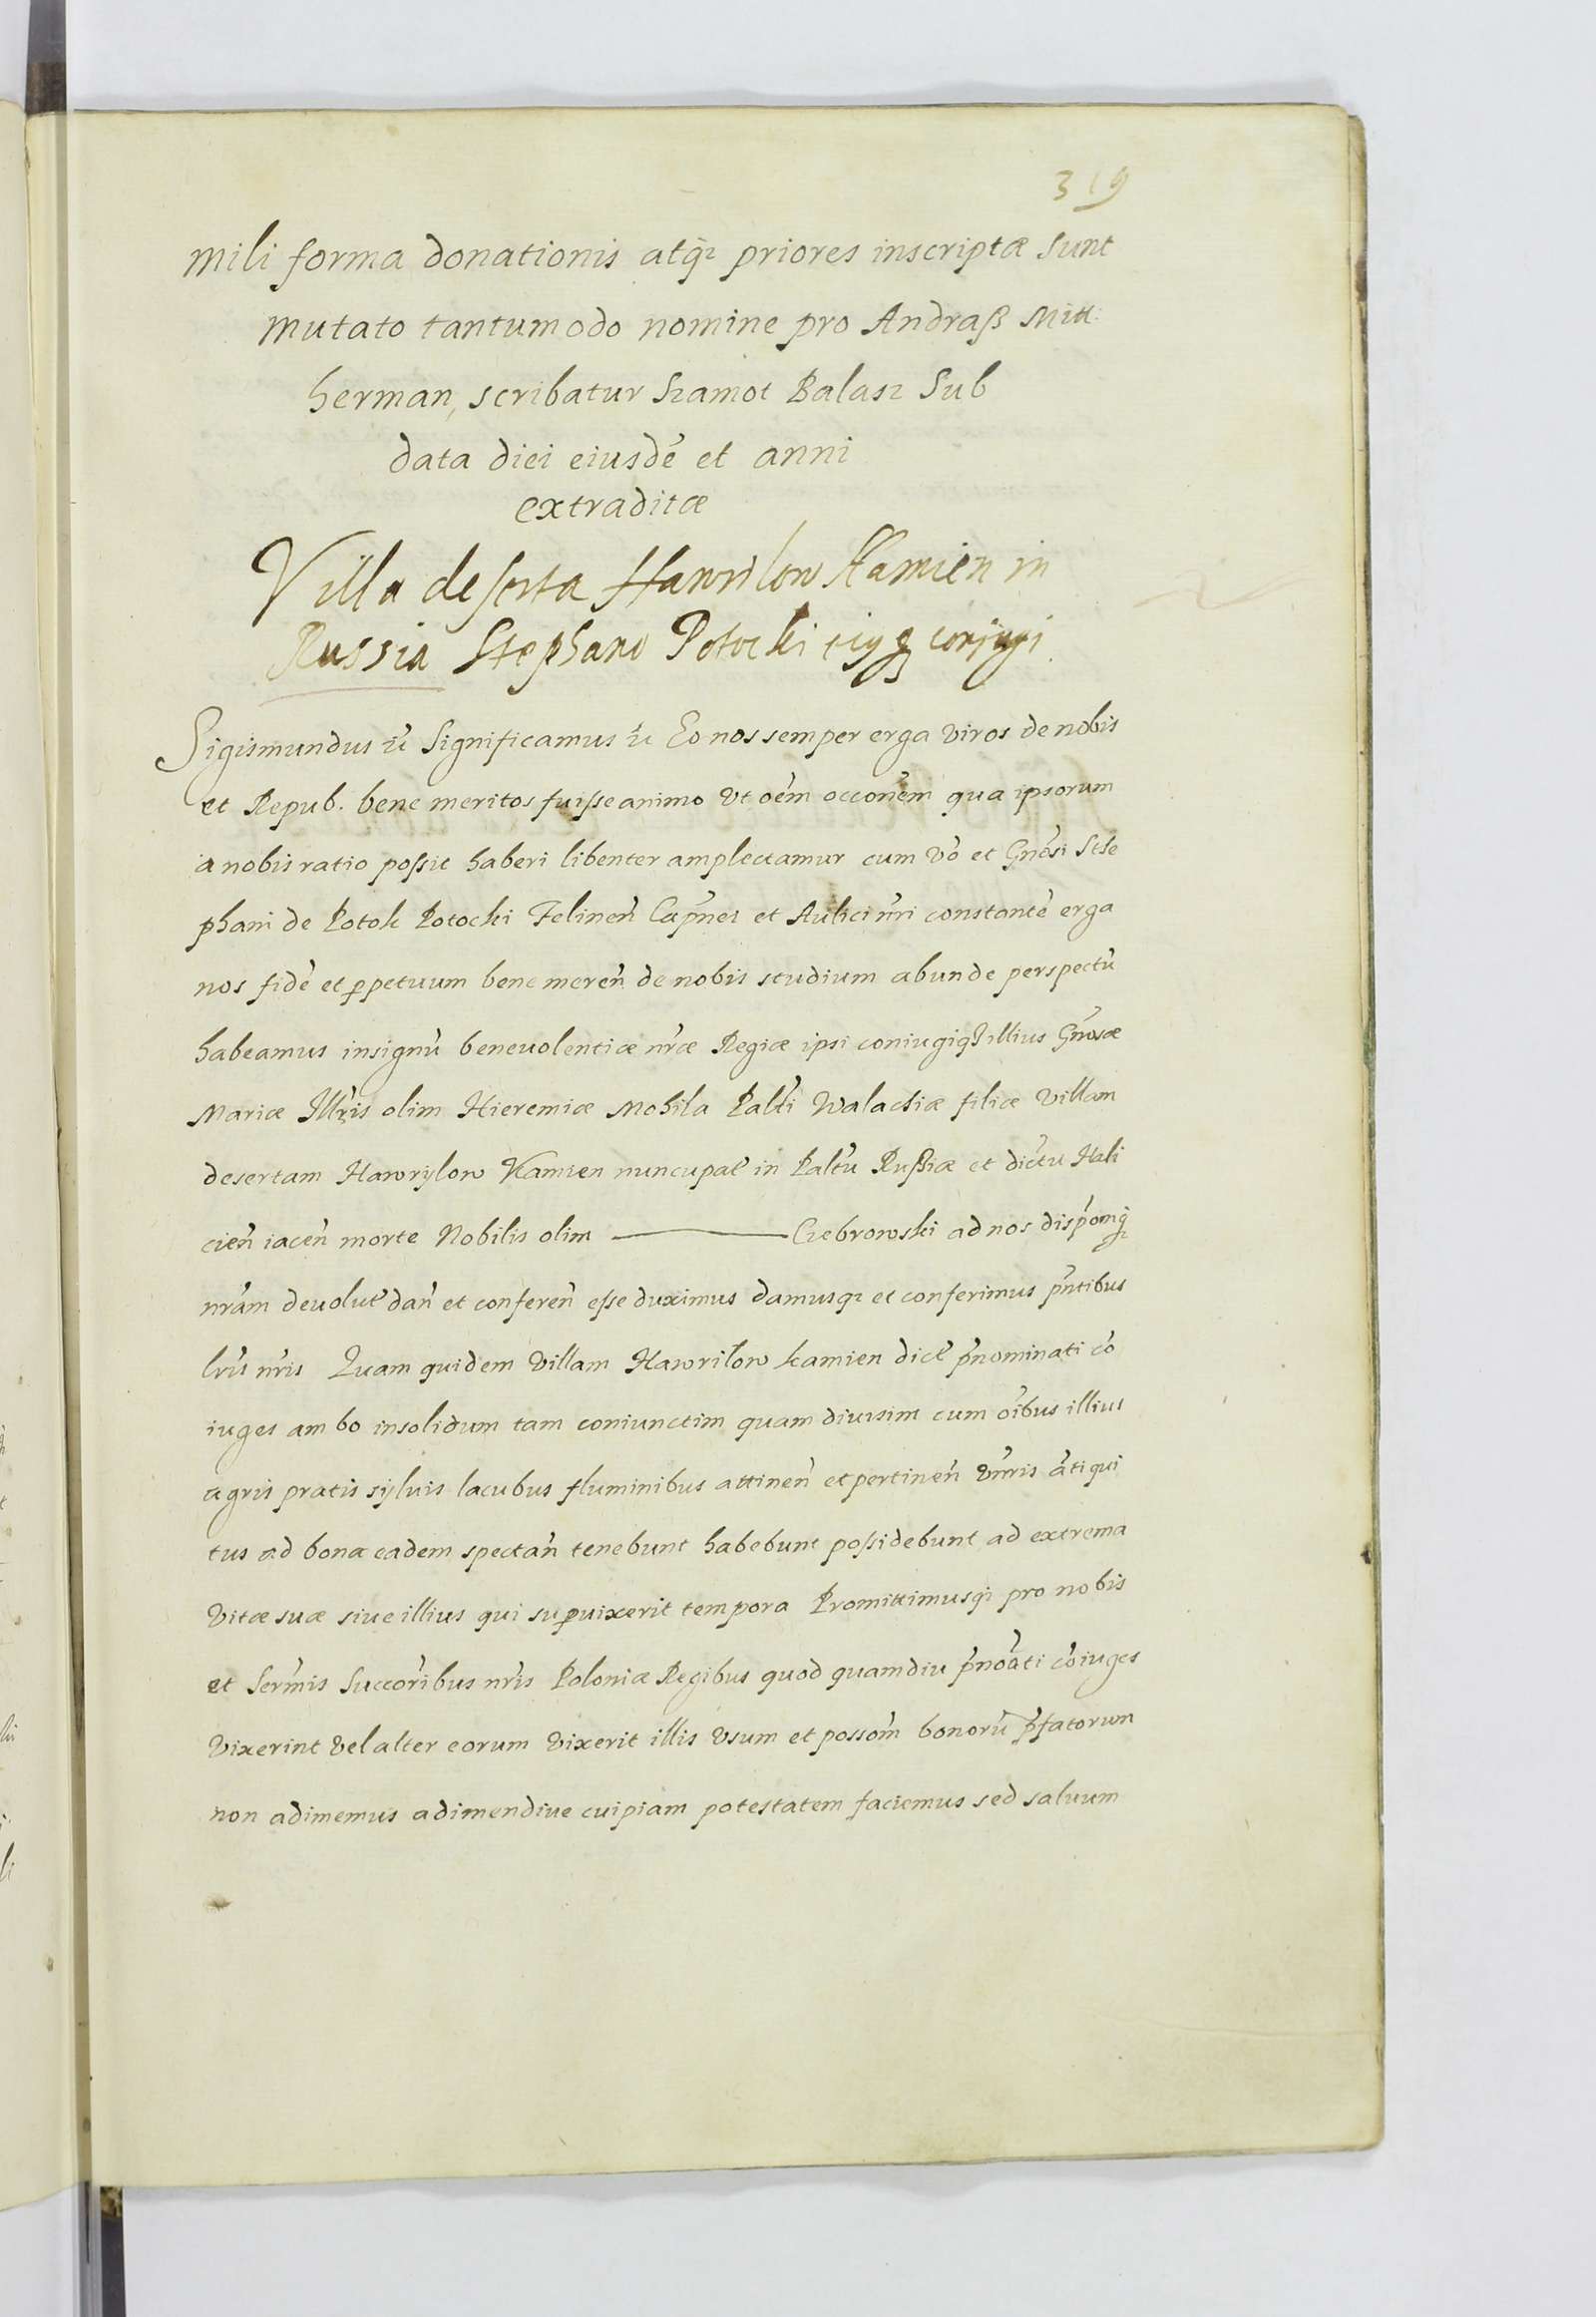 319
mili forma donationis atq́ꝫ priores inscriptæ sunt
mutato tantumodo nomine pro Andraß Mitt:
herman, scribatur Szamot Balasz Sub
data diei eiusdē et anni
extraditæ
Villa deserta Hawrilow Kamien in
Russia Stephano Potocki eiusq̨ conjugi
Sigismundus &c̄ Significamus &c̄ Eo nos semper erga viros de nobis
et Repub. bene meritos fuisse animo vt oēm occonēm qua ipsorum
a nobis ratio possit haberi libenter amplectamur cum vō et Gn̄osi Ste
phani de Potok Potocki Felinen̄ Cap̄nei et Aulici n̄ri constantē erga
nos fidē et ꝑpetuum bene meren̄ de nobis studium abunde perspectū
habeamus insignū beneuolentiæ n̄ræ Regiæ ipsi coniugiqꝫ illius Gn̄osæ
Mariæ Illr̄is olim Hieremiæ Mohila Pal̄ti Walachiæ filiæ villam
desertam Hawrylow Kamien nuncupat̄ in Pal̄tu Russiæ et dic̄tu Hali
cien̄ iacen̄ morte Nobilis olim ——— Czebrowski ad nos disp̄omq́ꝫ
nr̄am deuolut̄ dan̄ et conferen̄ esse duximus damusqꝫ et conferimus p̄ntibus
lr̄is nr̄is Quam quidem villam Hawrilow kamien dict̄ p̄nominati cō
iuges ambo insolidum tam coniunctim quam diuisim cum oībus illius
agris pratis syluis lacubus fluminibus attinen̄ et pertinen̄ vn̄iris āntiqui
tus ad bona eadem spectan̄ tenebunt habebunt possidebunt ad extrema
vitæ suæ siue illius qui suꝑuixerit tempora Promittimusqꝫ pro nobis
et Serm̄is Succōribus nr̄is Poloniæ Regibus quod quamdiu p̄nōati cōiuges
vixerint vel alter eorum vixerit illis vsum et possom̄ bonorū p̄fatorum
non adimemus adimendiue cuipiam potestatem faciemus sed saluum